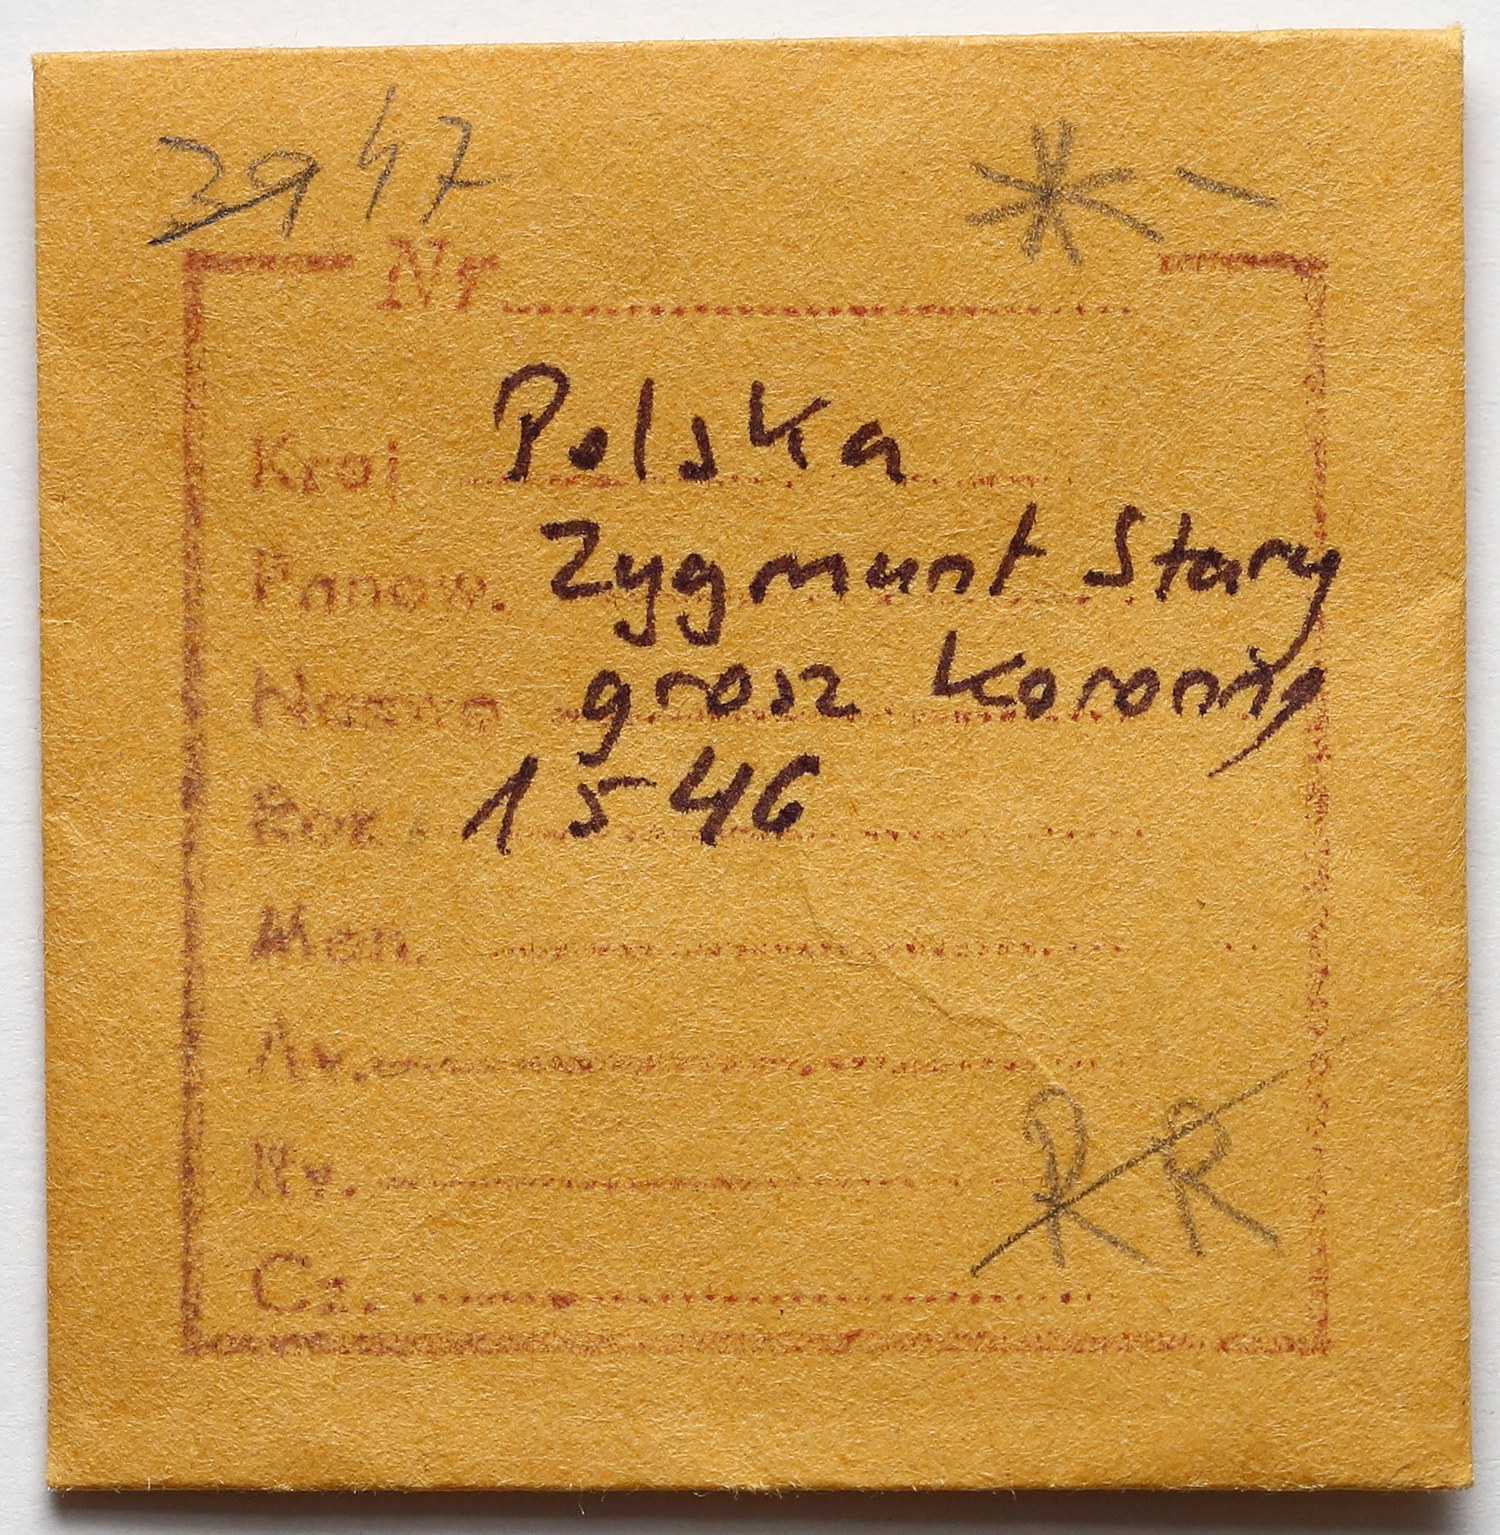 39 47 * -
Nr
Kraj Polska
Panow. Zygmunt Stary
Nazwa grosz koronny
Rok 1546
Men.
Av.
Rv.
RR
Cz.